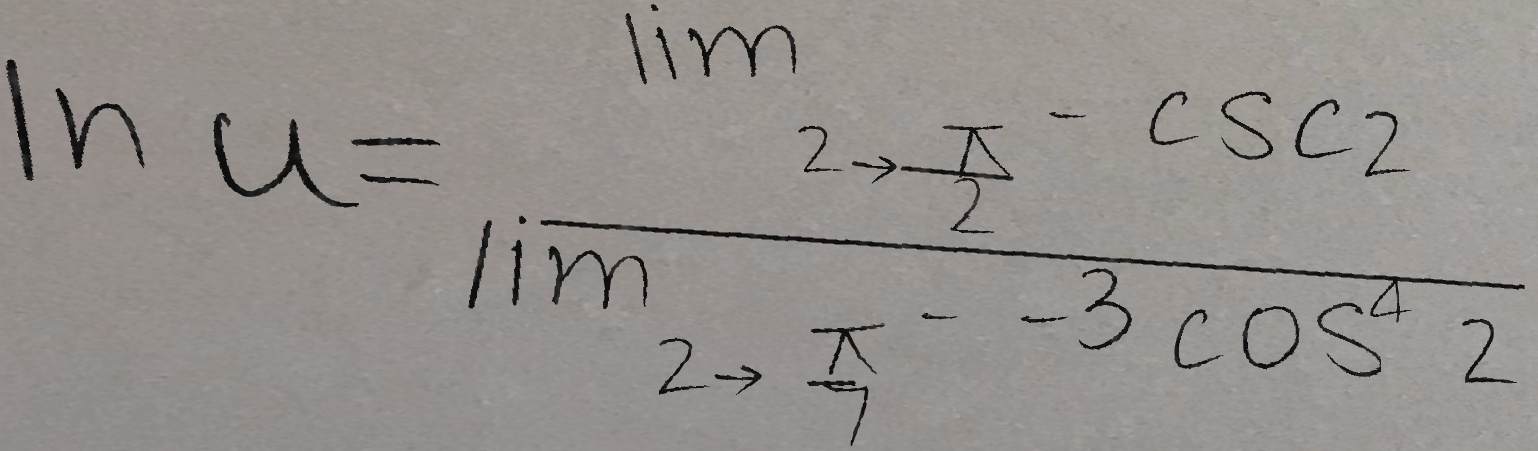 ln u = \frac{\lim_{2 \to \frac{\pi}{2}^-} csc 2}{\lim_{2 \to \frac{\pi}{7}^-} -3 cos^4 2}